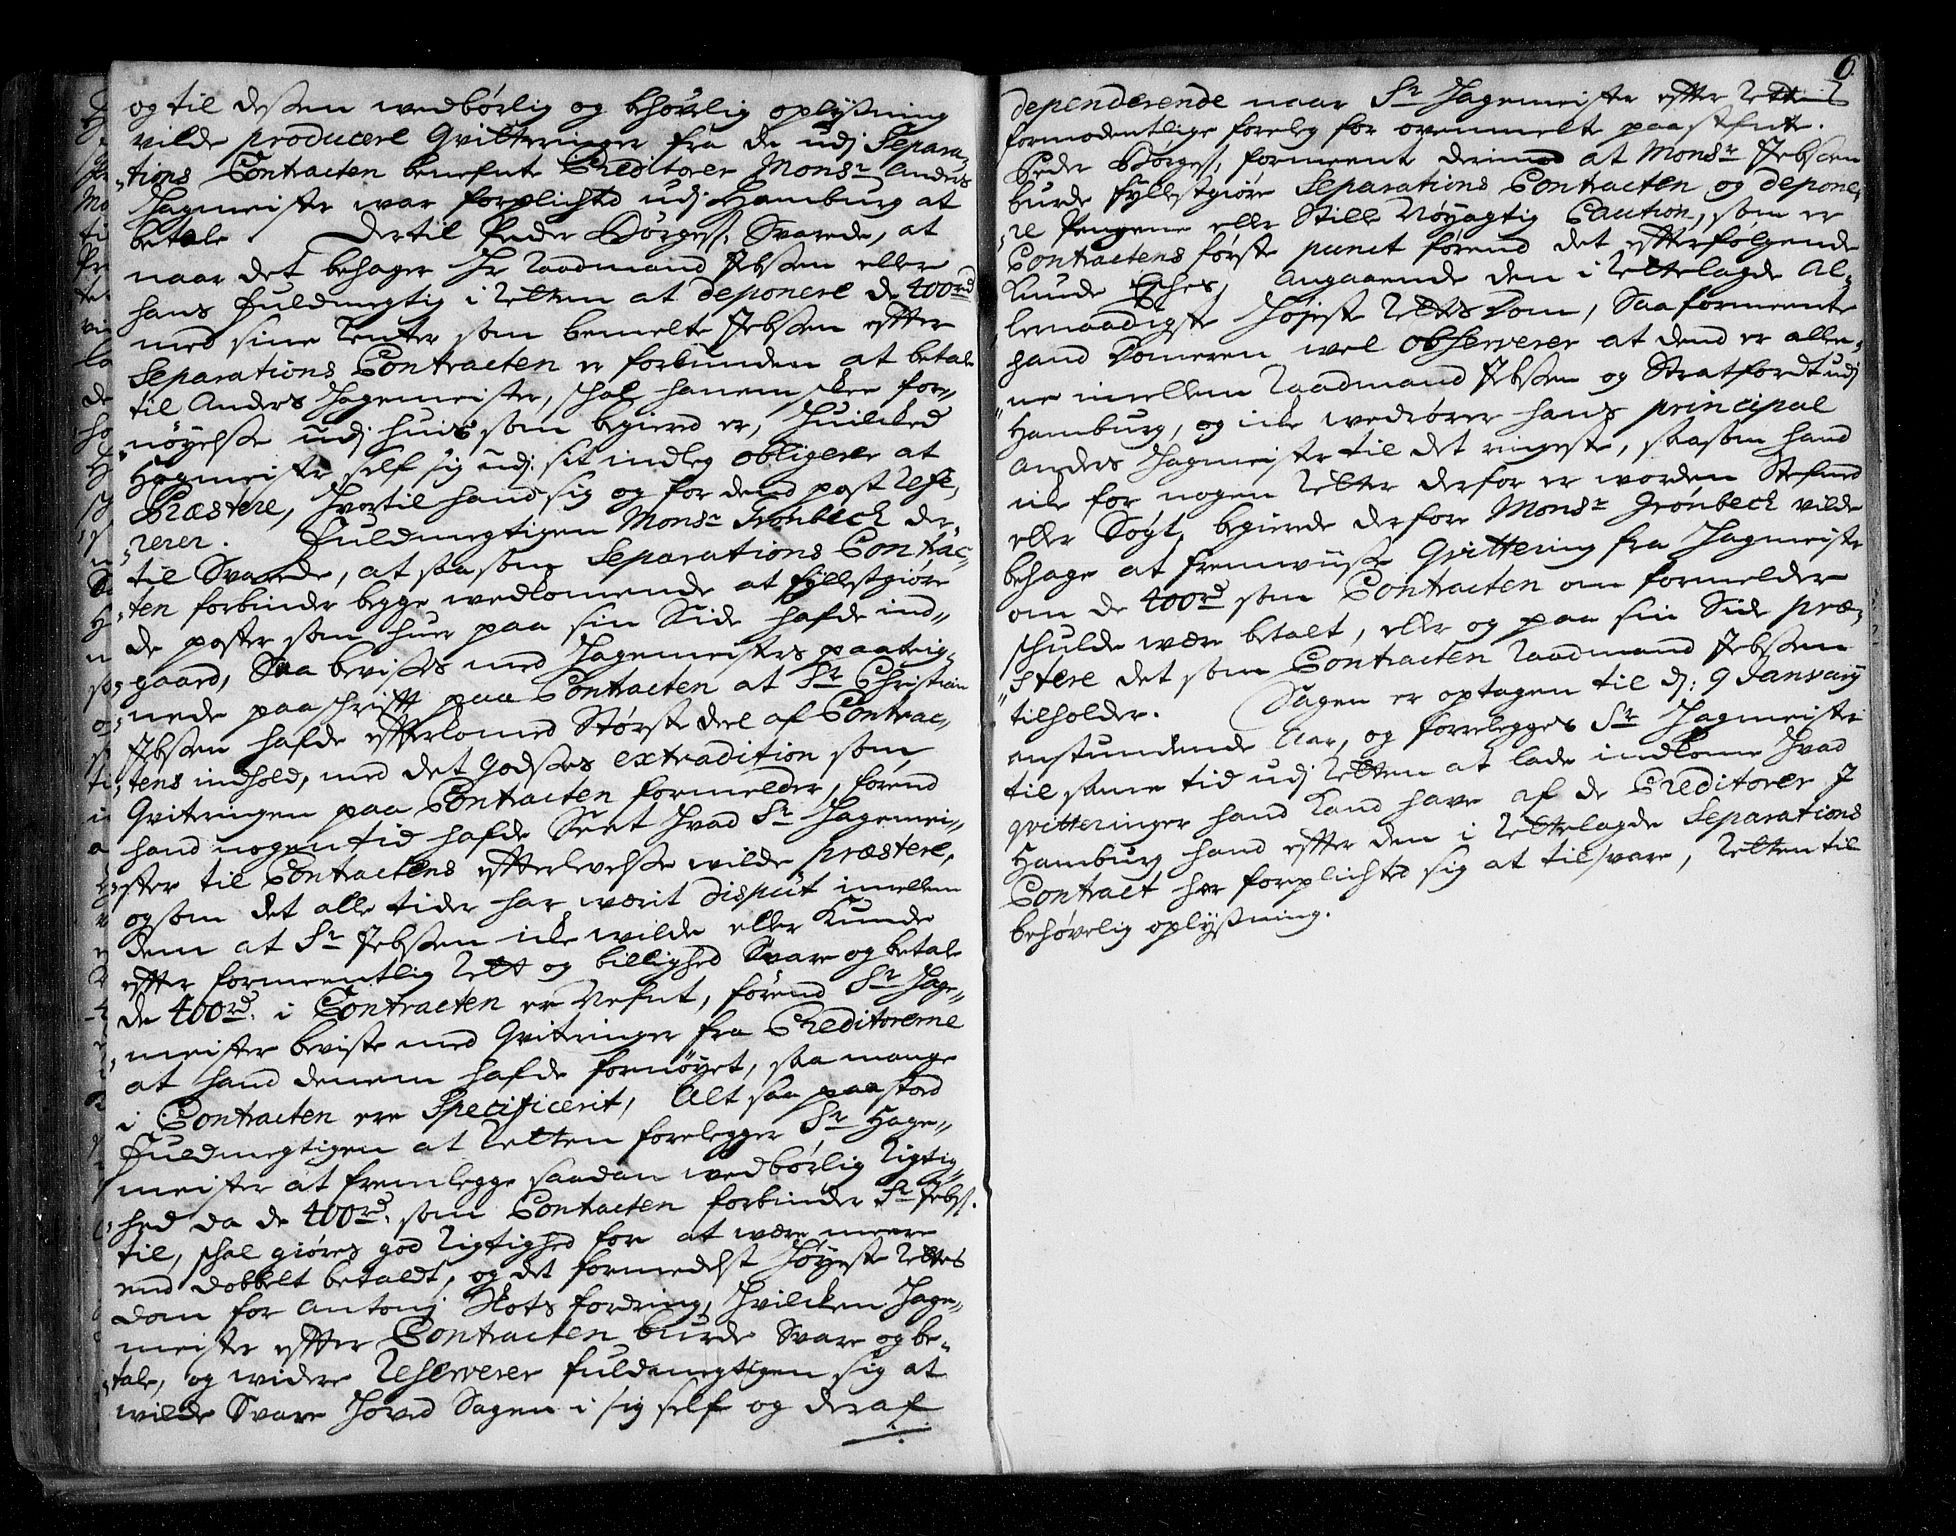 og til dessen wedbørlig og behøvlig oplysning
vilde producere Qvitteringer fra de udj Separa-
tions Contracten benefnte Creditorer Monsr Anders
Hagmeister war forplichted udj Hamburg at
betale. Dertil Peder Børgess. Svarede, at
naar det behager Hr Raadmand Jebsen eller
hans fuldmegtig i Retten at deponere de 400rd
med sine Renter som bemelte Jebsen effter
Separations Contracten er forbunden at betale
til Anders Hagemeister, schal hanem skee for-
nøyelse udj huis som begiered er, Huilcked
Hagmeister self sig udj sit indleg obligerer at
Præstere, Hvortil hand sig og for dend post refe-
rerer. Fuldmegtigen Monsr Grønbeck der-
til Svarede, at saasom Separations Contrac-
ten forbinder begge wedkomende at fyllestgiøre
de poster som huer paa sin Side hafde ind-
gaard, Saa bevises med Hagemeisters paateig-
nede paaschrifft paa Contracten at Sr Christian
Jebsen hafde efterkomed Største deel af Contrac-
tens indhold, med det Godses extradition som
Qvitringen paa Contracten formelder, førend
hand nogen tid hafde Seet Hvad Sr Hagemei-
ster til Contractens efterlevelse wilde præstere,
og som det alle tider har wærit disput imellem
dem at Sr Jebsen icke wilde eller Kunde
effter formeentlig Rett og billighed Svare og betale
de 400rd. i Contracten er Nefnt, førend Sr Hage-
meister beviste med Qvitringer fra Creditorerne
at hand denem hafde fornøyet, saa mange
i Contracten ere Specificerit, Alt saa paastod
Fuldmegtigen at Retten forelegger Sr Hage-
meister at fremlegge saadan wedbørlig Rigtig-
hed da de 400rd. som Contracten forbinder Sr Jebs.
til, schal giøres god Rigtighed for at være meere
end dobbelt betaldt, og det formedelst Høyeste Rettes
dom for Antonj Skots fordring, Hvilcken Hage-
meister effter Contracten burde Svare og be-
tale, og widere Reserverer fuldmegtigen sig at
wilde Svare Hoved Sagen i sig self og deraf
6.
dependerende naar Sr Hagemeister effter Rettens
formodentlige foreleg for ovenmelte paastefnte.
Peder Børgess. formeente derimod at Monsr Jebsen
burde fyllestgiøre Separations Contracten og depone-
re Pengene eller Stille Nøyagtig Caution, som er
Contractens første punct førend det efterfølgende
Kunde Esches, Angaaende den i Rettelagde Al-
lernaadigste Højeste Retts Dom, Saa formeente
hand Domeren wel observerer at dend er alle-
ne imellem Raadmand Jebsen og Stratfordt udj
Hamburg, og icke wedrører hans principal
Anders Hagmeister til det ringeste, saasom hand
icke for nogen Retter derfor er worden Stefned
eller Søgt, begierede derfore Monsr Grønbeck vilde
behage at fremwiise Qvittering fra Hagmeister
om de 400rd som Contracten om formelder
schulde være betalt, eller og paa sin Side præ-
stere det som Contracten Raadmand Jebsen
tilholder. Sagen er optagen til d: 9 January
anstundende Aar, og forrelegges Sr Hagmeister
til same tid udj Retten at lade indkome Hvad
qvitteringer hand Kand have af de Creditorer J
Hamburg hand effter den i Rettelagde Separations
Contract har forplichted sig at tilsvare, Retten til
behøvelig oplysning.